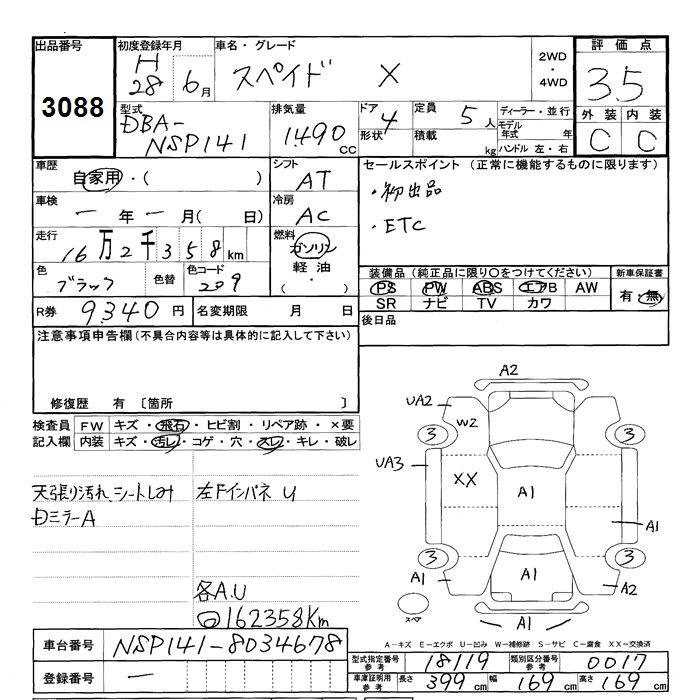 出品番号 初度登録年月 車名・グレード 評価点
3088 H 28年 6月 スペイド X 2WD ・ 4WD 3.5
型式 排気量 ドア 4 定員 5人 ディーラー・並行 外装 内装
DBA-NSP141 1490cc 形状 積載 kg モデル年式 年 ハンドル 左・右 C C
車歴 シフト セールスポイント (正常に機能するものに限ります)
自家用・( ) AT ・初出品
車検 冷房 ・ETC
ー年ー月( 日) AC
走行 燃料
16万2千358km ガソリン・軽油・( )
色 色替 色コード 装備品(純正品に限り○をつけてください) 新車保証書
ブラック 209 PS PW ABS エアB AW 有・無
SR ナビ TV カワ
R券 9340円 名変期限 月 日 後日品
注意事項申告欄(不具合内容等は具体的に記入して下さい)
修復歴 有 〔箇所 〕
検査員 FW キズ・飛石・ヒビ割・リペア跡・×要
記入欄 内装 キズ・汚レ・コゲ・穴・スレ・キレ・破レ
天張り汚れ、シートしみ 左Fインパネ U
Dミラー A
各A.U
162358Km
A2
UA2 W2
3 3
UA3 XX A1
A1
3 3
A1 A1 A2
スペア A1
A-キズ E-エクボ U-凹み W-補修跡 S-サビ C-腐食 XX-交換済
車台番号 NSP141-8034678
登録番号 ー
型式指定番号 参考 18119 類別区分番号 参考 0017
車庫証明用 参考 長さ 399cm 幅 169cm 高さ 169cm